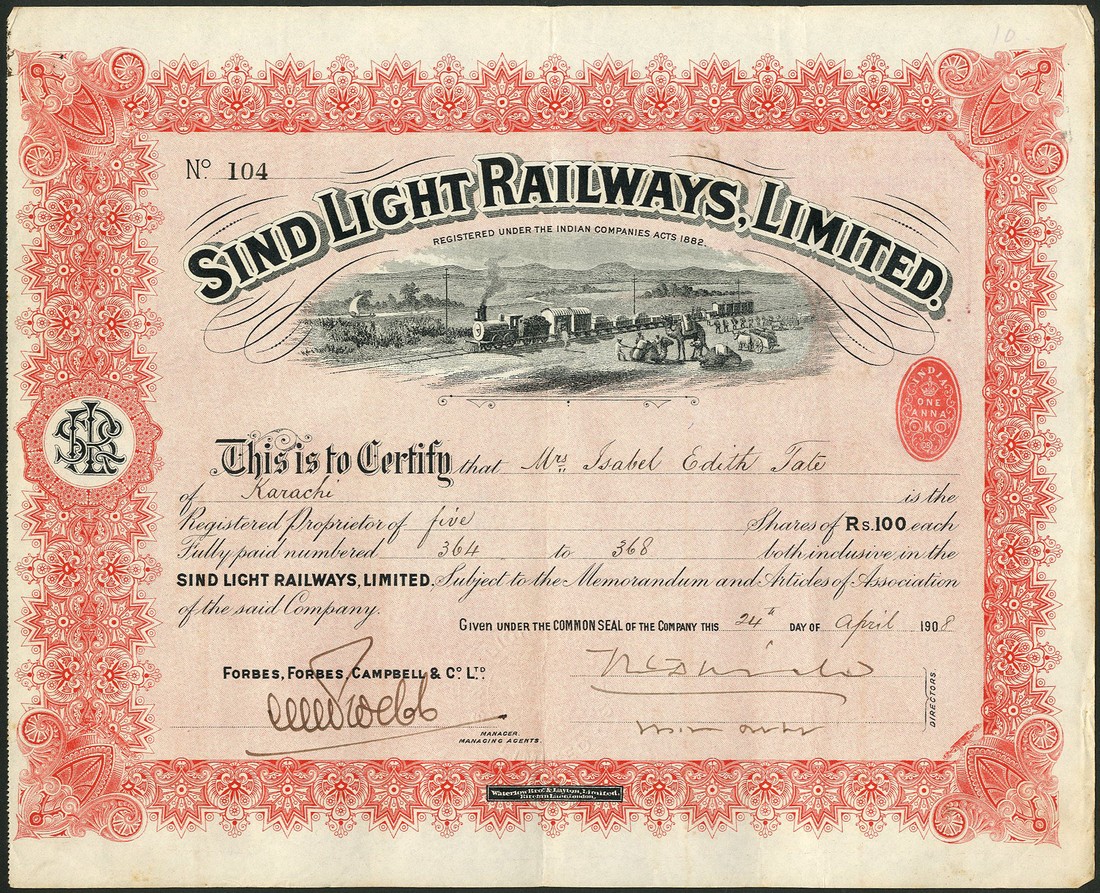 10
Nº 104
SIND LIGHT RAILWAYS, LIMITED.
REGISTERED UNDER THE INDIAN COMPANIES ACTS 1882.
INDIA
ONE
ANNA
K
This is to Certify that Mrs Isabel Edith Tate
of Karachi is the
Registered Proprietor of five Shares of Rs.100 each
Fully paid numbered 364 to 368 both inclusive, in the
SIND LIGHT RAILWAYS, LIMITED. Subject to the Memorandum and Articles of Association
of the said Company.
GIVEN UNDER THE COMMON SEAL OF THE COMPANY THIS 24th DAY OF April 1908
FORBES, FORBES, CAMPBELL & Cº. Lᵀᴰ.
Webb
MANAGER
MANAGING AGENTS.
DIRECTORS
Waterlow Bros. & Layton, Limited,
Birchin Lane, London.